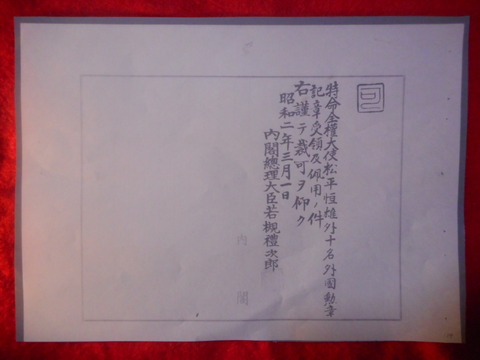 特命全權大使松平恒雄外十名外國勲章
記章受領及佩用ノ件
右謹テ裁可ヲ仰ク
昭和二年三月一日
内閣總理大臣若槻禮次郎
内閣